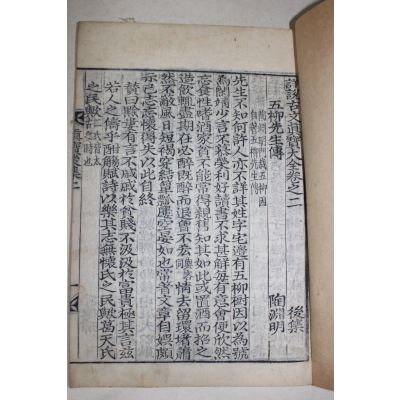 詳說古文眞寶大全卷之二 後集
五柳先生傳 陶淵明門栽五柳因 陶淵明
先生不知何許人亦不詳其姓字宅邊有五柳樹因以爲號
焉閑靖少言不慕榮利好讀書不求甚解每有意會便欣然
忘食性嗜酒家貧不能常得親舊知其如此或置酒而招之
造飮輒盡期在必醉旣醉而退曾不吝情去留環堵蕭
然不蔽風日裋褐穿結簞瓢屢空晏如也常著文章自娛頗
示己志忘懷得失以此自終
贊曰黔婁有言不戚戚於貧賤不汲汲於富貴極其言玆
若人之儔乎酣觴賦詩以樂其志無懷氏之民歟葛天氏
之民歟
眞寶後集二